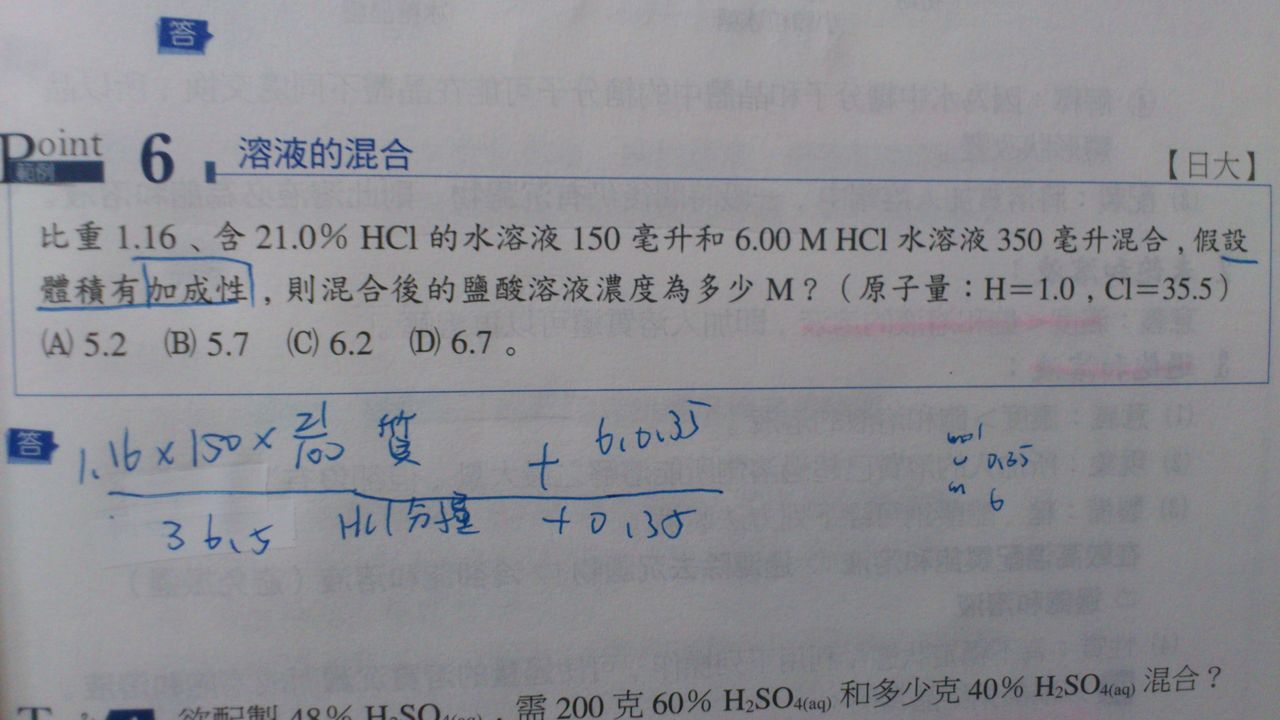 答
Point 範例 6 溶液的混合
【日大】
比重 1.16、含 21.0% HCl 的水溶液 150 毫升和 6.00 M HCl 水溶液 350 毫升混合，假設
體積有加成性，則混合後的鹽酸溶液濃度為多少 M？（原子量：H=1.0，Cl=35.5）
(A) 5.2 (B) 5.7 (C) 6.2 (D) 6.7。
答
1.16×150×21/100 質 + 6,0.35
36.5 HCl分子量 +0.35
mol
0.35
6
欲配製 48% H₂SO₄(aq)，需 200 克 60% H₂SO₄(aq) 和多少克 40% H₂SO₄(aq) 混合？